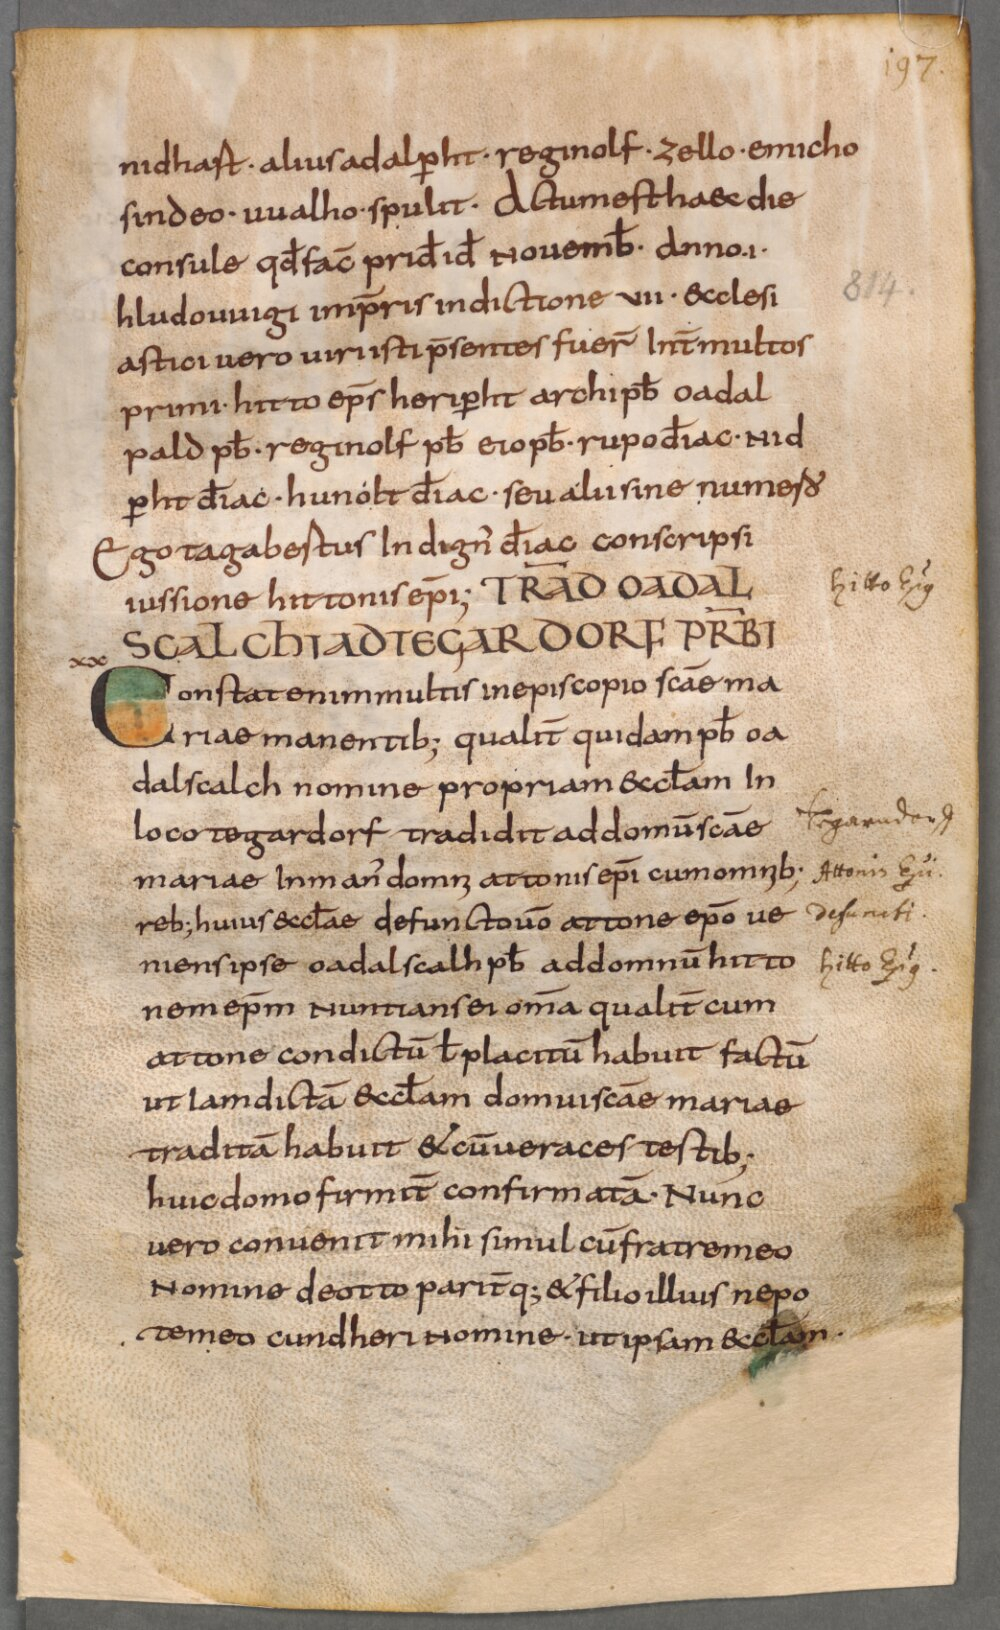 197.
nidhast · alius adalp̄ht · reginolf · zello · emicho
sindeo · uualho · spulit · Actum est haec die
consule qđ fac̄ prid̄ id̄ Novemb̄ · Anno · i ·
814.
hludouuigi imp̄ris indictione vii · &cclesi
astici vero viri isti p̄sentes fuer̄ Int̄ multos
primi · hitto ep̄s heripͥht archip̄b oadal
pald p̄b · reginolf p̄b eio p̄b · rupo d̄iac · Nid
p̄ht d̄iac · hunolt d̄iac · seu alii sine numero
Ego tagabertus Indign̄ d̄iac conscripsi
iussione hittonis ep̄i; TRAD̄ OADAL
hitto
SCALCHI AD TEGARDORF PR̄BI
xx
Constat enim multis in episcopio sc̄ae ma
riae manentib; qualit̄ quidam p̄b oa
dalscalch nomine propriam &ccl̄am In
loco tegardorf tradidit ad domū sc̄ae
Tegarndorf
mariae In man̄ domni attonis ep̄i cum omnib;
Attonis
reb; huius &ccl̄ae defuncto v̄o attone ep̄o ue
defuncti.
niens ipse oadalscalh p̄b ad domnū hitto
hitto
nem ep̄m Nuntians ei om̄a qualit̄ cum
attone condictū ł placitū habuit factū
ut Iam dictā &ccl̄am domui sc̄ae mariae
traditā habuit & cū veraces testib;
huic domo firmit̄ confirmatā · Nunc
vero convenit mihi simul cū fratre meo
Nomine deotto parit̄q; & filio illius nepo
te meo cundheri Nomine · ut ipsam &ccl̄am ·